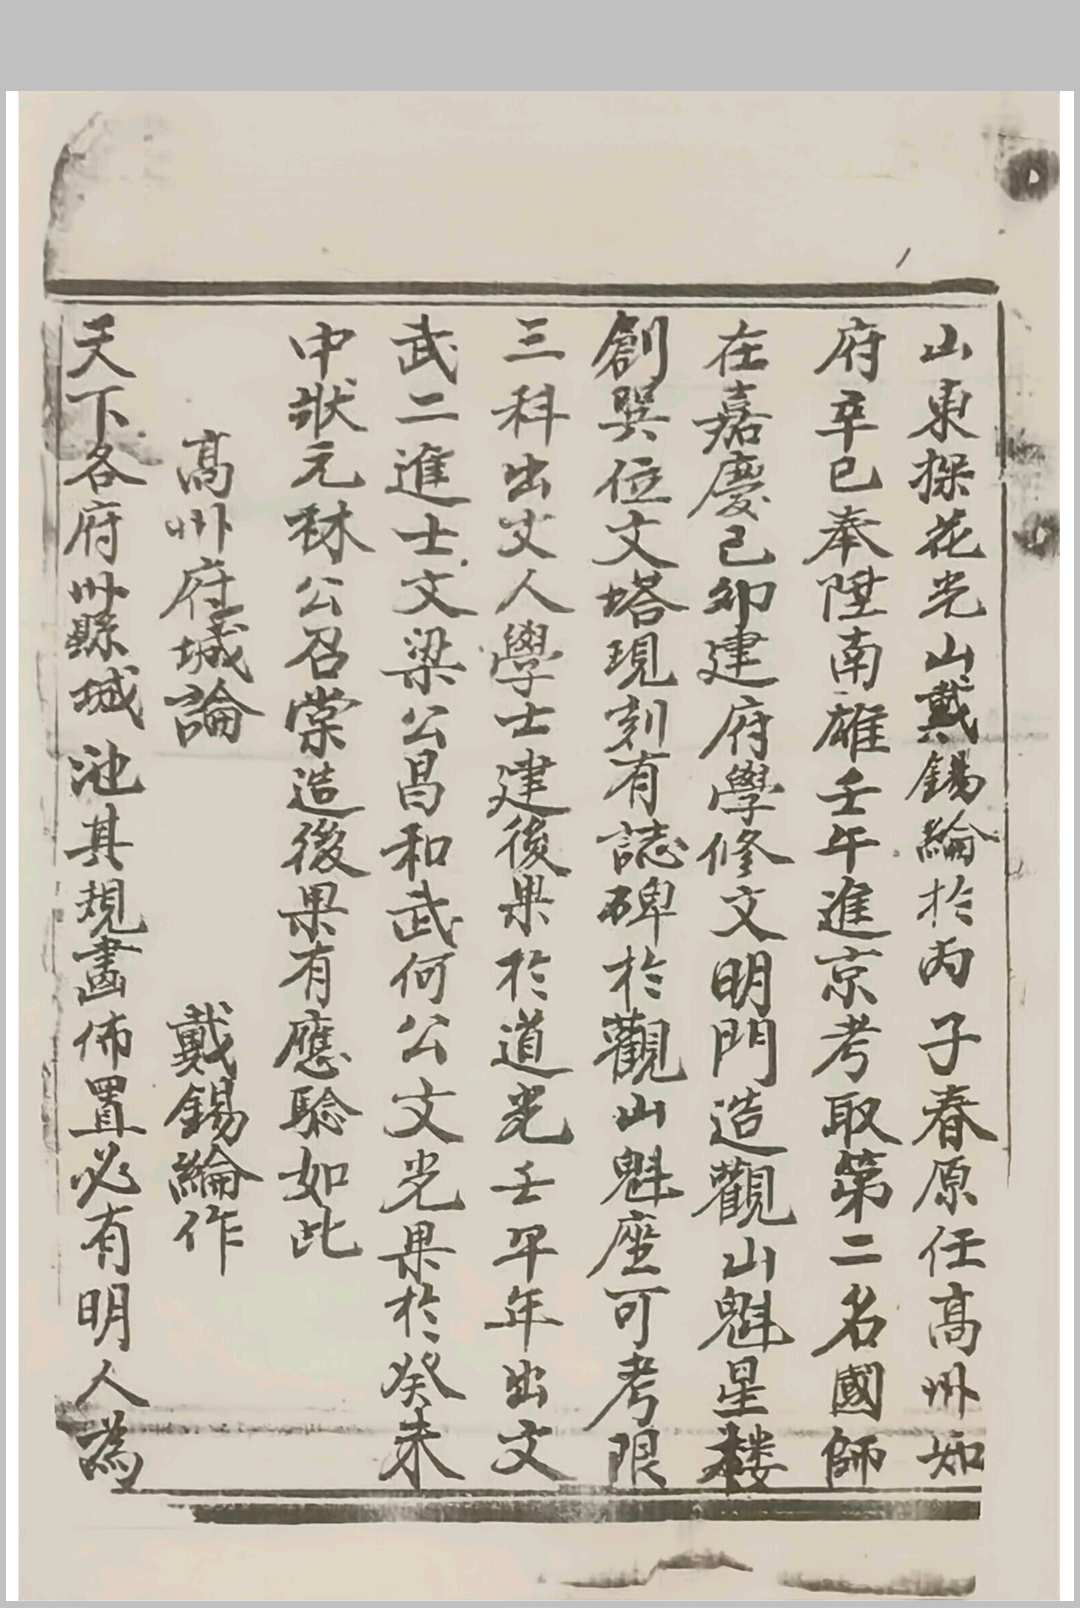 山東探花光山戴錫綸於丙子春原任高州知
府辛巳奉陞南雄壬午進京考取第二名國師
在嘉慶己卯建府學修文明門造觀山魁星楼
創巽位文塔現刻有誌碑於觀山魁座可考限
三科出文人學士建後果於道光壬午年出文
武二進士文梁公昌和武何公文光果於癸未
中狀元林公召棠造後果有應騐如此
高州府城論 戴錫綸作
天下各府州縣城池其規畫佈置必有明人為